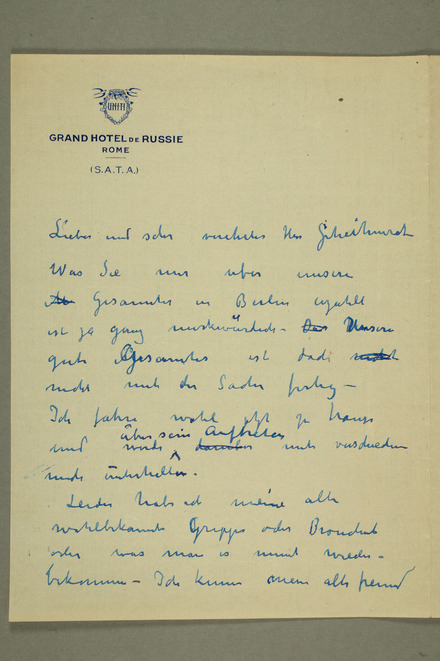 UNITI
GRAND HOTEL DE RUSSIE
ROME
(S.A.T.A.)
Lieber und sehr verehrter Herr Geheimrat
Was Sie mir über unsere
Gesandter in Berlin erzählt
ist ja ganz merkwürdig - Das Unsere
gute Gesandter ist doch nicht
nicht mit der Sache fertig -
Ich fahre wohl jetzt zu Hause
über sein Auftreten
und werde darüber mit verschiedenen
unterhalten.
Leider habe ich meine alte
wohlbekannte Grippe oder Bronchit
oder was man es nennt wieder-
bekommen - Ich kenne meine alte Freund